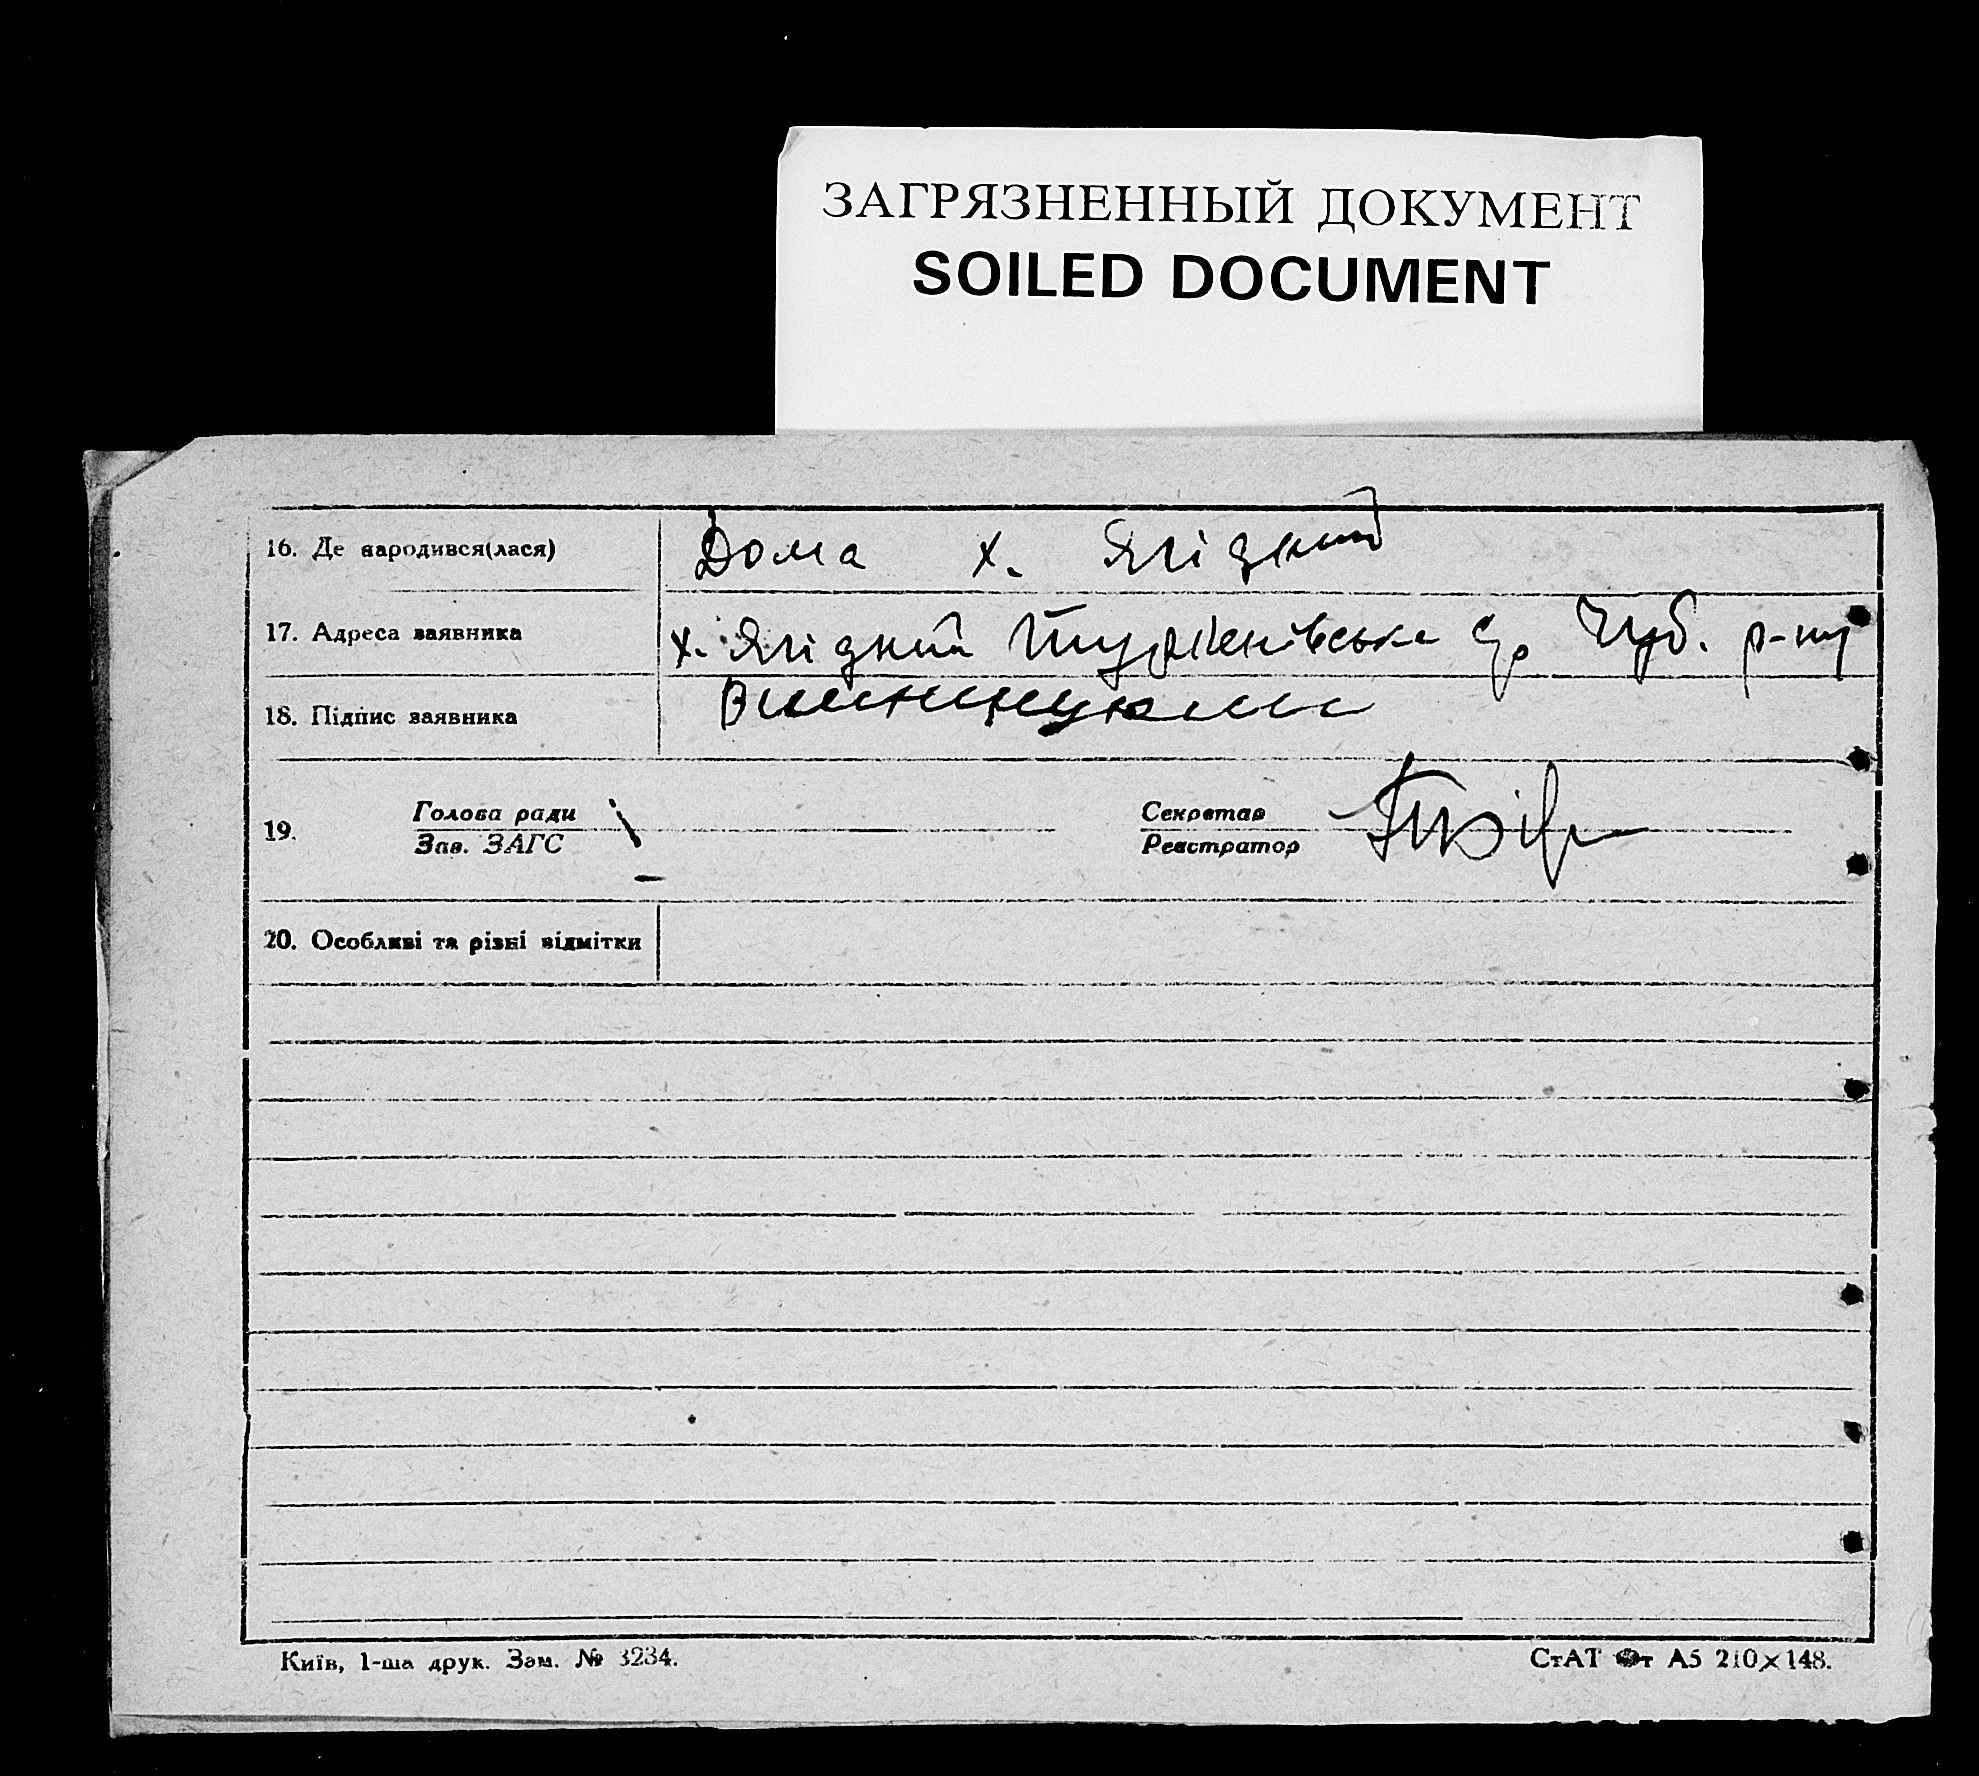 ЗАГРЯЗНЕННЫЙ ДОКУМЕНТ
SOILED DOCUMENT
16. Де народився(лася) Дома х. Ягідний
17. Адреса заявника х. Ягідний с/р Чуб. р-ну
18. Підпис заявника
19. Голова ради Секретар
Зав. ЗАГС Реєстратор
20. Особливі та різні відмітки
Київ, 1-ша друк. Зам. № 3234.
СтАТ Фт А5 210×148.